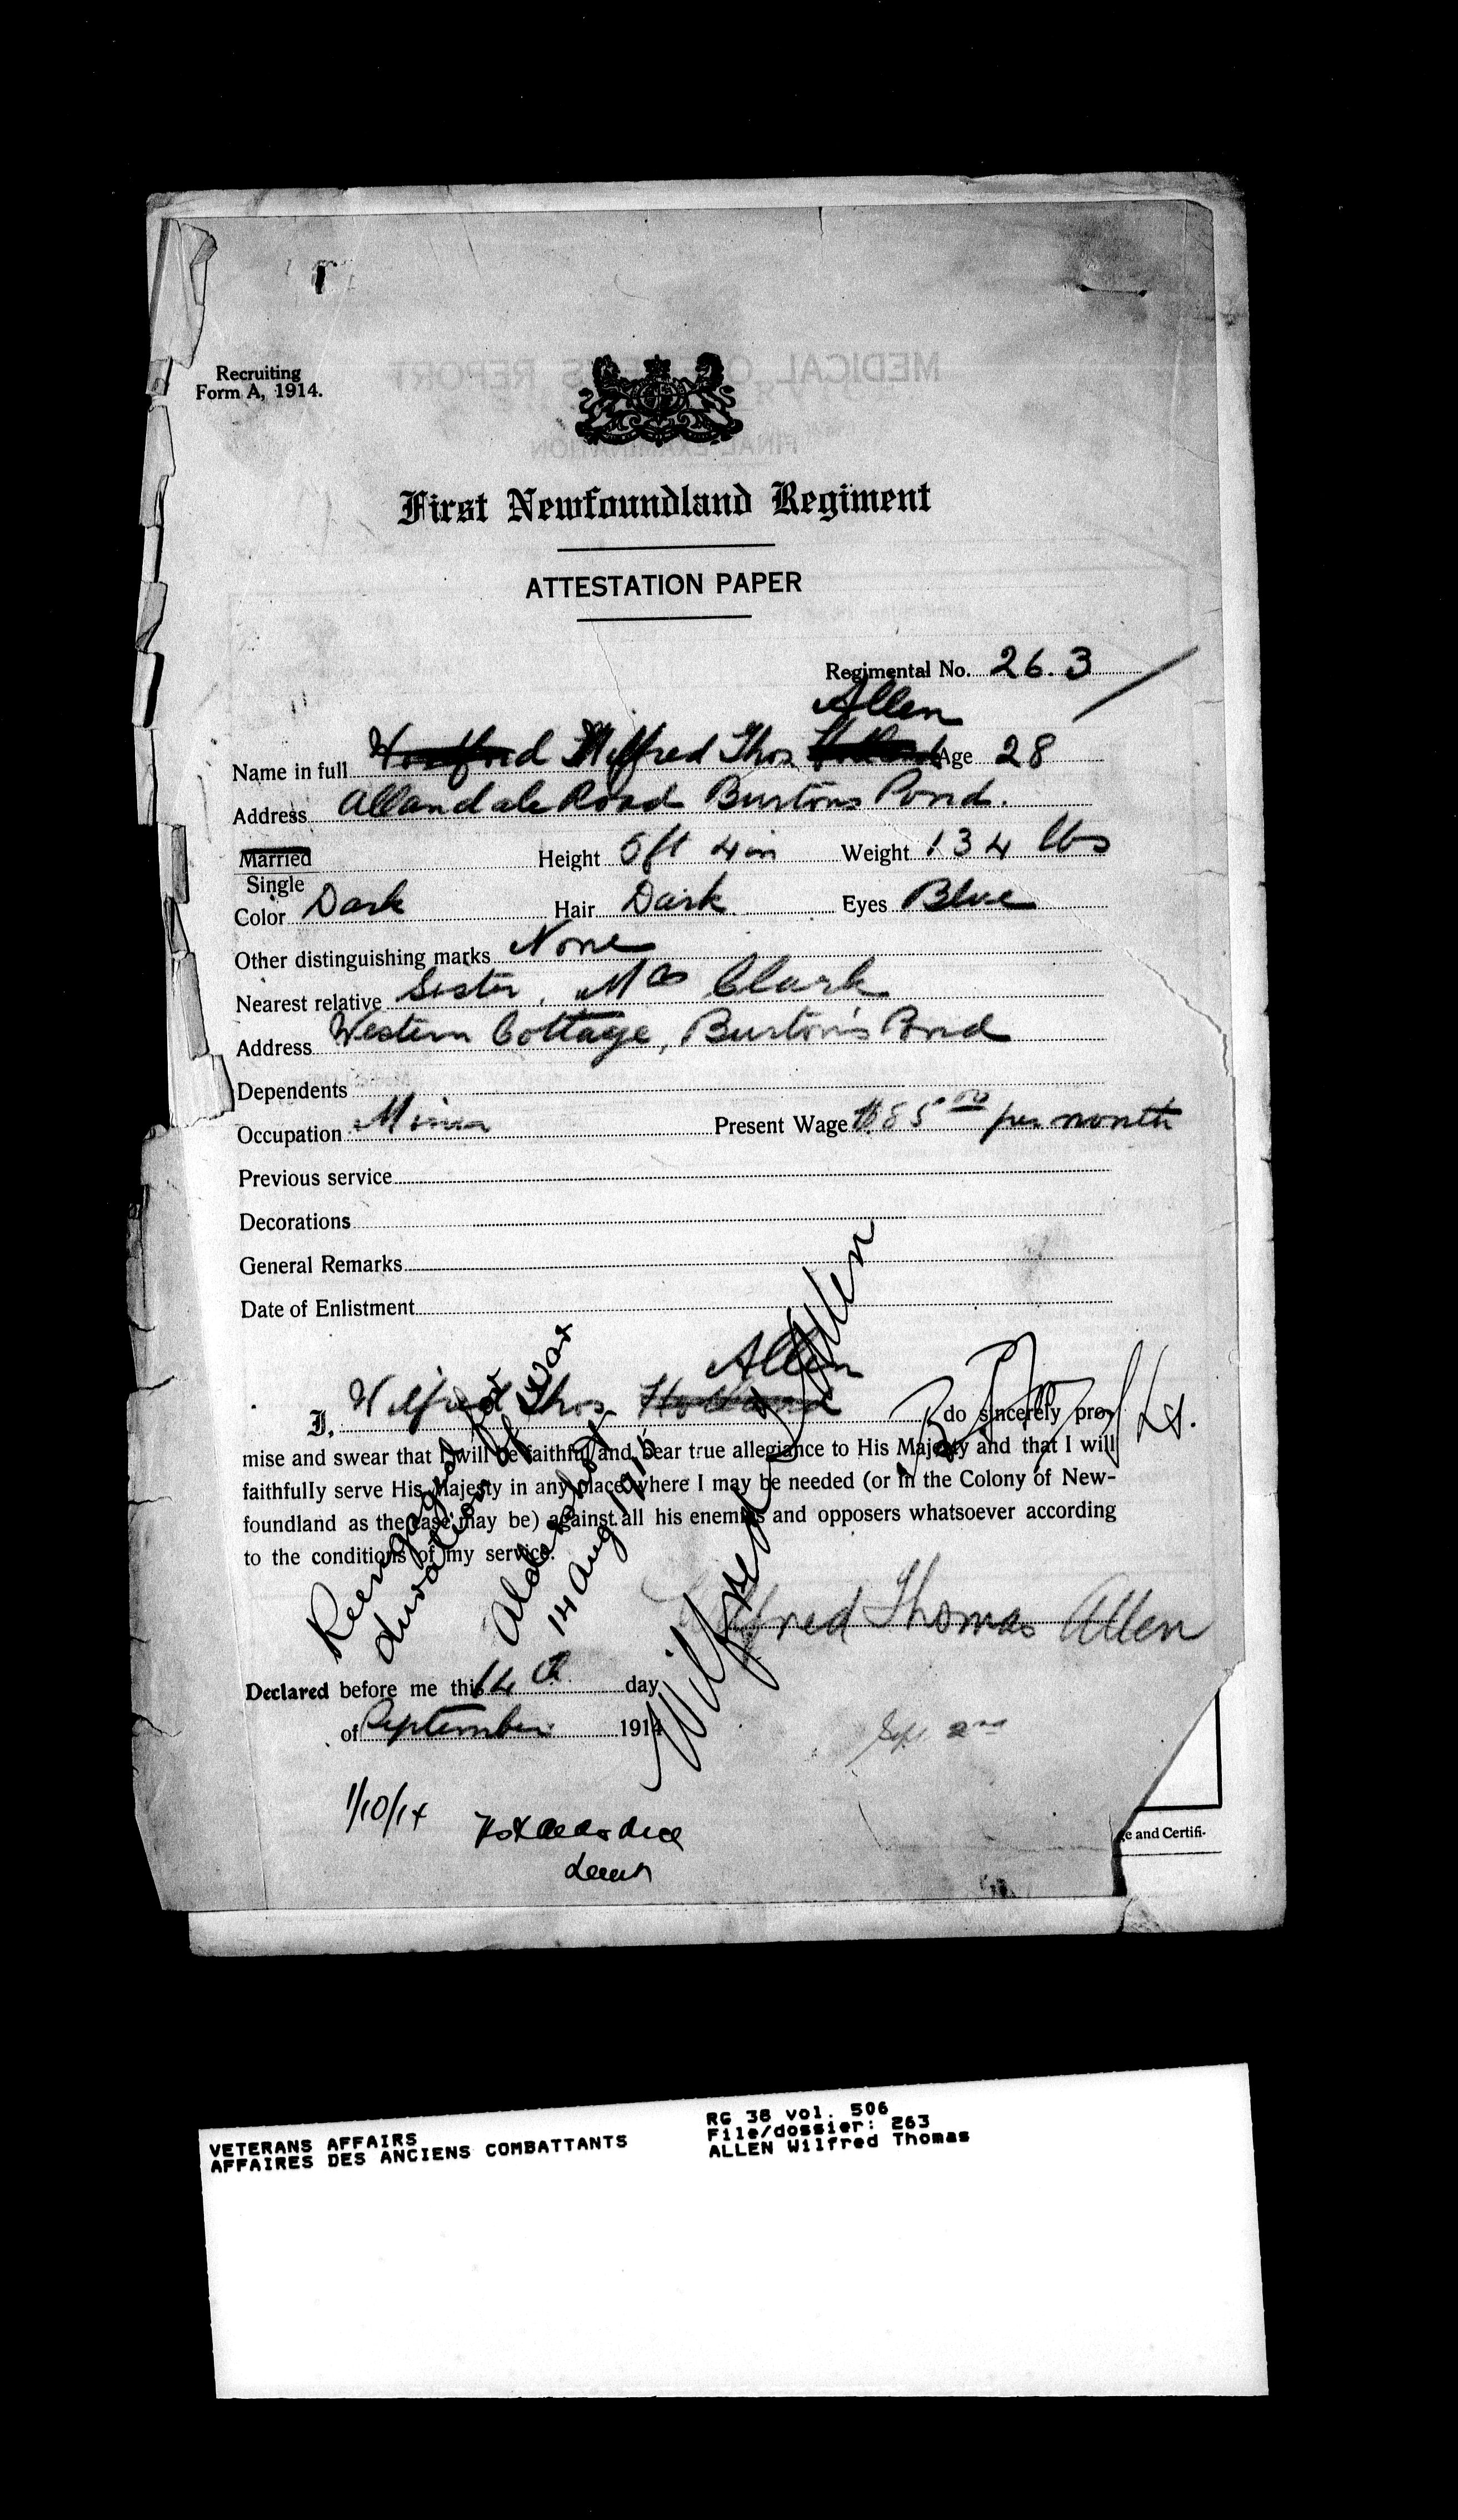 Recruiting
Form A, 1914.
MEDICAL OFFICER'S REPORT
FINAL EXAMINATION
First Newfoundland Regiment
ATTESTATION PAPER
Regimental No. 263
Allen
Name in full Wilfred Thos Age 28
Address Allandale Road Burtons Pond.
Married
Single
Height 5ft 4in Weight 134 lbs
Color Dark Hair Dark Eyes Blue
Other distinguishing marks None
Nearest relative Sister, Mrs Clark
Address Western Cottage, Burton's Pond
Dependents
Occupation Miner Present Wage $85 00 per month
Previous service
Decorations
General Remarks
Date of Enlistment
Allen
I, Wilfred Thos Holland do sincerely pro-
mise and swear that I will be faithful and bear true allegiance to His Majesty and that I will
faithfully serve His Majesty in any place where I may be needed (or in the Colony of New-
foundland as the case may be) against all his enemies and opposers whatsoever according
to the conditions of my service.
Reengaged for
duration of war
Aldershot
14 Aug 1915
Wilfred Allen
Lt.
Wilfred Thomas Allen
Declared before me this 14th day
of September 1914
Sept 2nd
1/10/14
ge and Certifi-
VETERANS AFFAIRS
AFFAIRES DES ANCIENS COMBATTANTS
RG 38 vol. 506
File/dossier: 263
ALLEN Wilfred Thomas